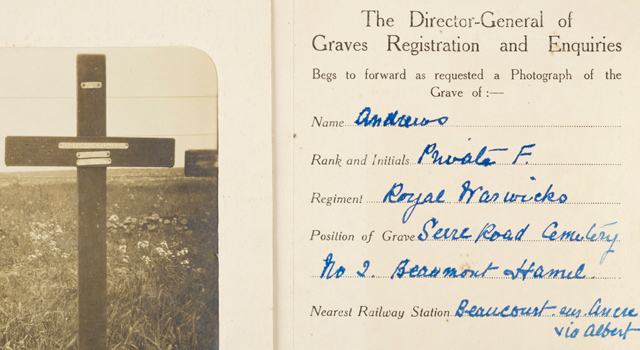 The Director-General of
Graves Registration and Enquiries
Begs to forward as requested a Photograph of the
Grave of :—
Name Andrews
Rank and Initials Private F.
Regiment Royal Warwicks
Position of Grave Serre Road Cemetery
No 2. Beaumont Hamel.
Nearest Railway Station Beaucourt-sur-Ancre
via Albert